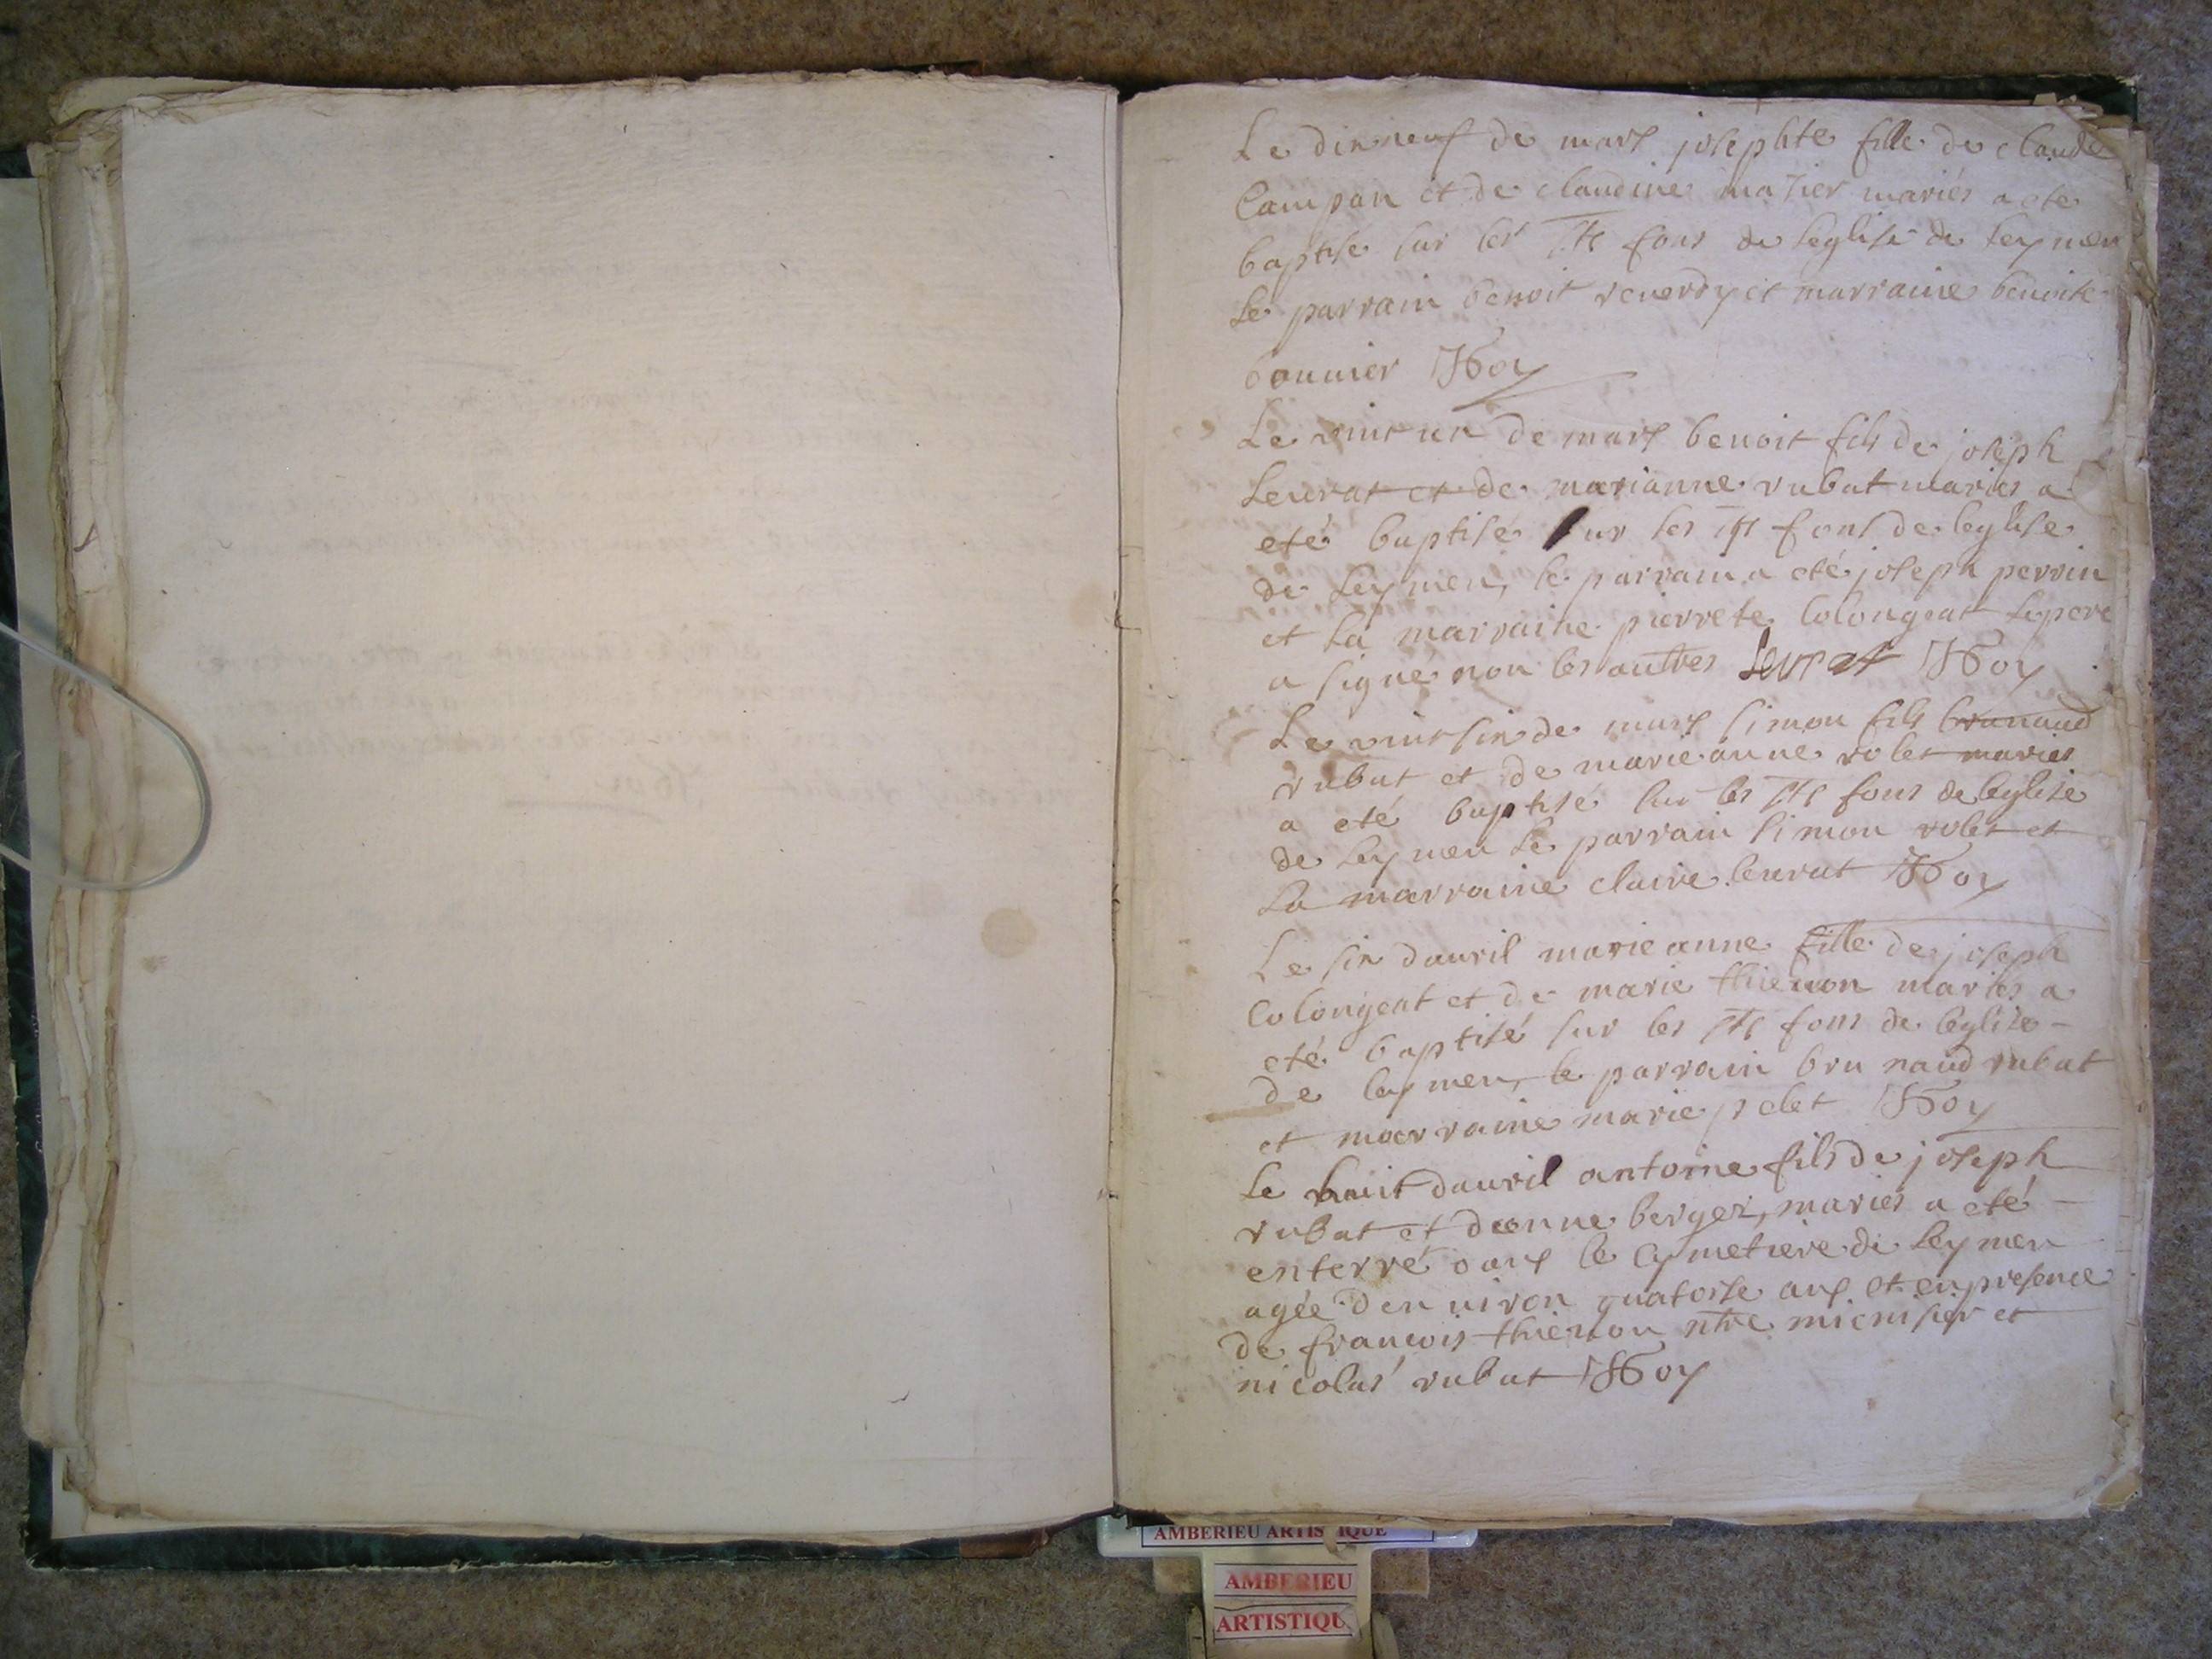 Le dix neuf de mars josephte fille de claude
Campan et de claudine mazier mariés a ete
baptise sur les sts fons de leglise de leymen
le parrain benoit reverdy et marraine benoite
bonnier Roy
Le vint un de mars benoit fils de joseph
Leurat et de marianne rubat mariés a
eté baptisé sur les sts fons de leglise
de Leymen, le parrain a eté joseph perrin
et la marraine pierrete Colongeat le pere
a signé non les autres Leurat Roy
Le vint sin de mars simon fils brunaud
rubat et de marie anne rolet mariés
a eté baptisé sur les sts fons de leglise
de leymen le parrain simon rolet et
La marraine claire leurat Roy
Le sin dauril marie anne fille de joseph
Colongeat et de marie thieuon mariés a
eté baptisé sur les sts fons de leglise
de leymen, le parrain bru naud rubat
et marraine marie pelet Roy
Le huit dauril antoine fils de joseph
rubat et deanne berger, mariés a eté
enterré dans le cymetiere de leymen
agée den uiron quatorse ans et en presence
de francois thieuon ntre et
nicolas rubat Roy
AMBERIEU ARTISTIQUE
AMBERIEU
ARTISTIQU